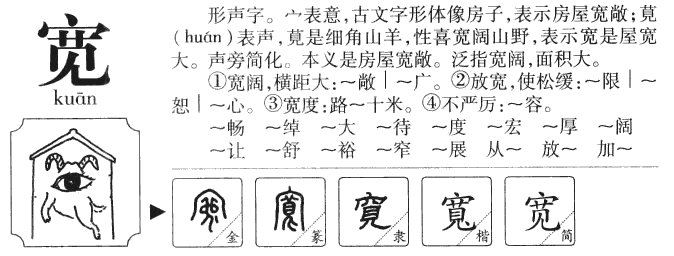 宽
kuān
形声字。宀表意，古文字形体像房子，表示房屋宽敞；萈
(huán)表声，萈是细角山羊，性喜宽阔山野，表示宽是屋宽
大。声旁简化。本义是房屋宽敞。泛指宽阔，面积大。
①宽阔，横距大：～敞｜～广。②放宽，使松缓：～限｜～
恕｜～心。③宽度：路～十米。④不严厉：～容。
～畅 ～绰 ～大 ～待 ～度 ～宏 ～厚 ～阔
～让 ～舒 ～裕 ～窄 ～展 从～ 放～ 加～
金 篆 隶 寬 楷 宽 简